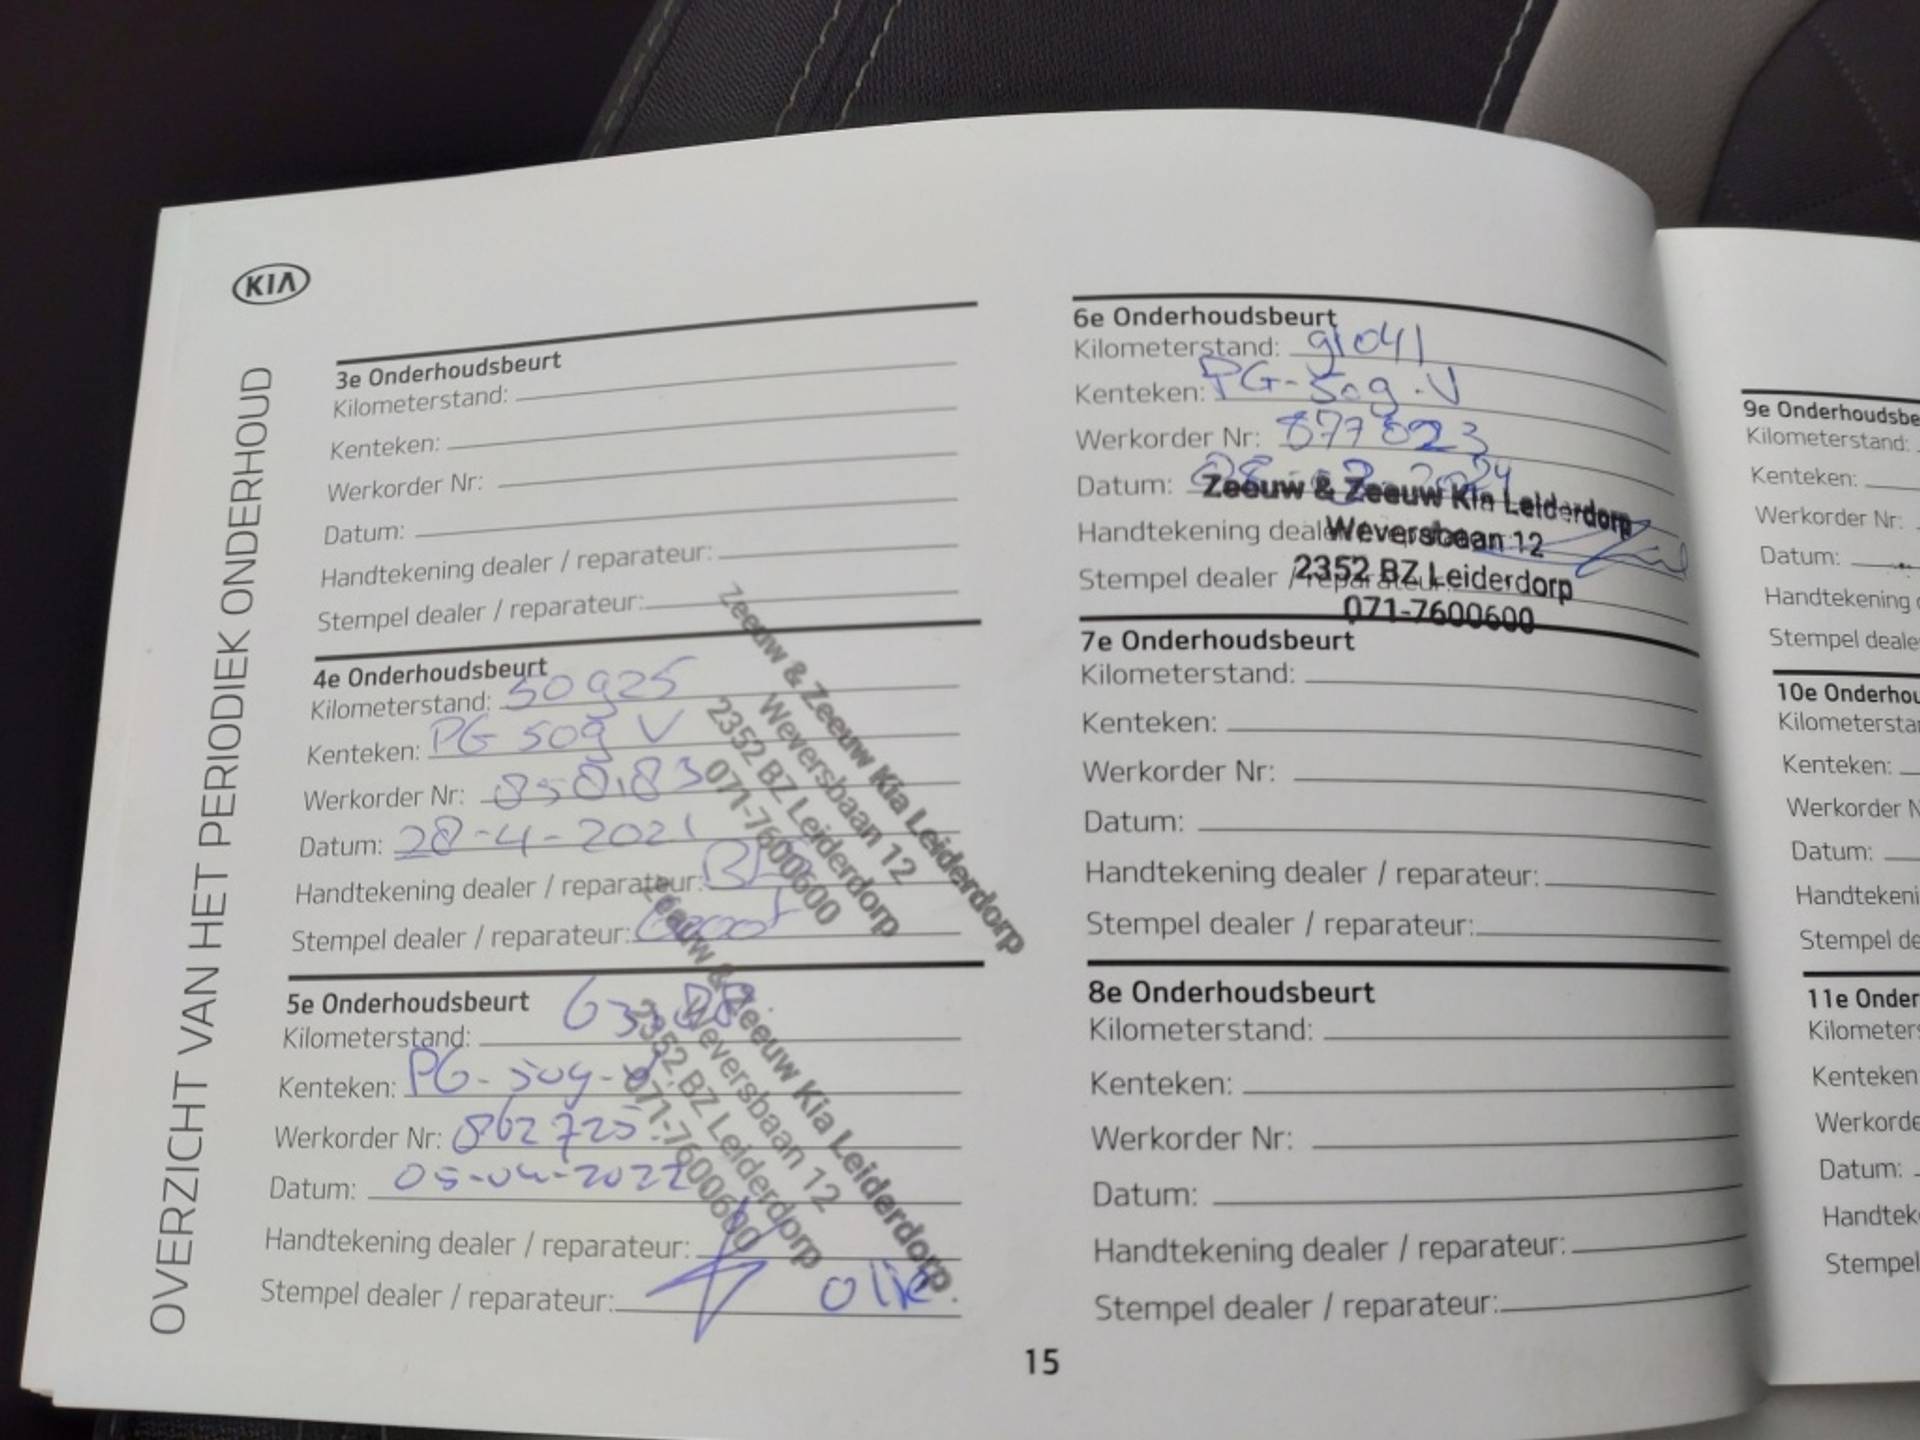 KIA
OVERZICHT VAN HET PERIODIEK ONDERHOUD
3e Onderhoudsbeurt
Kilometerstand:
Kenteken:
Werkorder Nr:
Datum:
Handtekening dealer / reparateur:
Stempel dealer / reparateur:
4e Onderhoudsbeurt
Kilometerstand: 50925
Kenteken: PG 509 V
Werkorder Nr: 850183
Datum: 28-4-2021
Handtekening dealer / reparateur:
Stempel dealer / reparateur:
Zeeuw & Zeeuw Kia Leiderdorp
Weversbaan 12
2352 BZ Leiderdorp
071-7600600
5e Onderhoudsbeurt
Kilometerstand:
Kenteken: PG-509-V
Werkorder Nr: 862725
Datum: 05-04-2022
Handtekening dealer / reparateur:
Stempel dealer / reparateur: olie
Zeeuw & Zeeuw Kia Leiderdorp
Weversbaan 12
2352 BZ Leiderdorp
071-7600600
6e Onderhoudsbeurt
Kilometerstand: 91041
Kenteken: PG-509-V
Werkorder Nr: 877823
Datum:
Handtekening dealer / reparateur:
Stempel dealer / reparateur:
Zeeuw & Zeeuw Kia Leiderdorp
Weversbaan 12
2352 BZ Leiderdorp
071-7600600
7e Onderhoudsbeurt
Kilometerstand:
Kenteken:
Werkorder Nr:
Datum:
Handtekening dealer / reparateur:
Stempel dealer / reparateur:
8e Onderhoudsbeurt
Kilometerstand:
Kenteken:
Werkorder Nr:
Datum:
Handtekening dealer / reparateur:
Stempel dealer / reparateur:
15
9e Onderhoudsbe
Kilometerstand:
Kenteken:
Werkorder Nr:
Datum:
Handtekening
Stempel deale
10e Onderhou
Kilometersta
Kenteken:
Werkorder N
Datum:
Handtekeni
Stempel de
11e Onder
Kilometers
Kenteken
Werkorde
Datum:
Handtek
Stempel